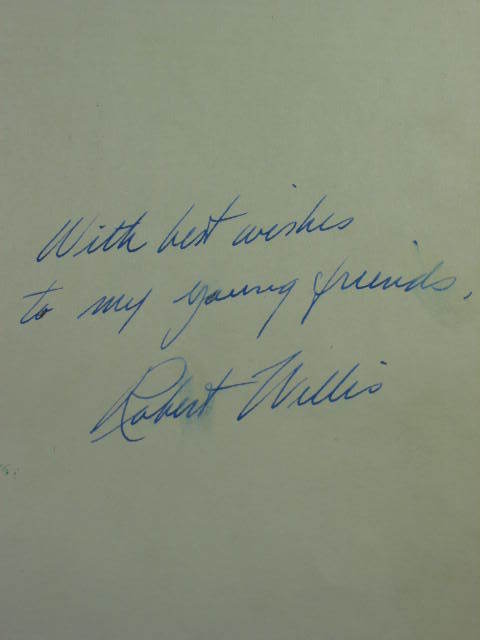 With best wishes
to my young friends,
Robert Willis